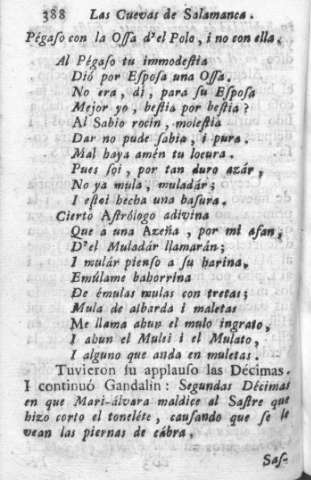 388 Las Cuevas de Salamanca.
Pégaſo con la Oſſa d'el Polo, i no con ella.
Al Pégaſo tu immodeſtia
Dió por Eſpoſa una Oſſa.
No era, dí, para ſu Eſpoſa
Mejor yo, beſtia por beſtia?
Al Sabio rocin, moleſtia
Dar no pude ſabia, i pura.
Mal haya amén tu locura.
Pues ſoi, por tan duro azár,
No ya mula, muladár;
I eſtoi hecha una baſura.
Cierto Aſtrólogo adivina
Que a una Azeña, por mi afan,
D'el Muladár llamarán;
I mulár pienſo a ſu harina,
Emúlame bahorrina
De émulas mulas con tretas;
Mula de albarda i maletas
Me llama ahun el mulo ingrato,
I ahun el Mulei i el Mulato,
I alguno que anda en muletas.
Tuvieron ſu applauſo las Décimas.
I continuó Gandalin: Segundas Décimas
en que Mari-álvara maldice al Saſtre que
hizo corto el toneléte, cauſando que ſe le
vean las piernas de cábra,
Saſ-